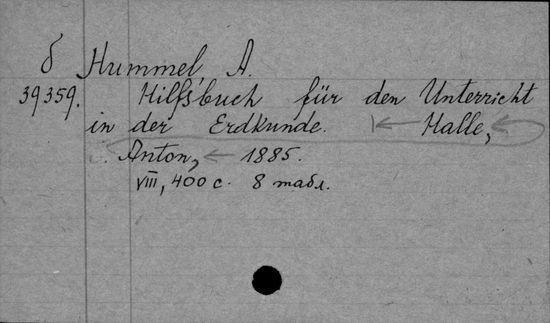 б Hummel, A.
39359. Hilfsbuch für den Unterricht
in der Erdkunde. Halle,
Anton, 1885.
VIII, 400 с. 8 табл.